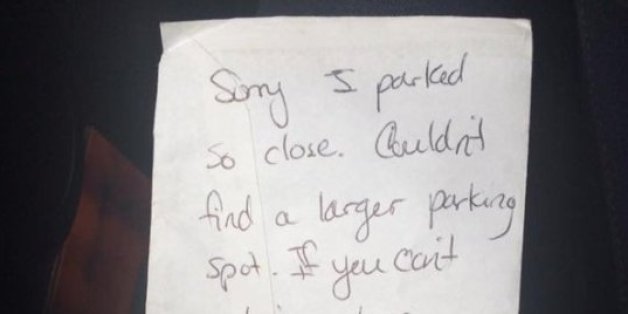 Sorry I parked
so close. Couldn't
find a larger parking
spot. If you can't